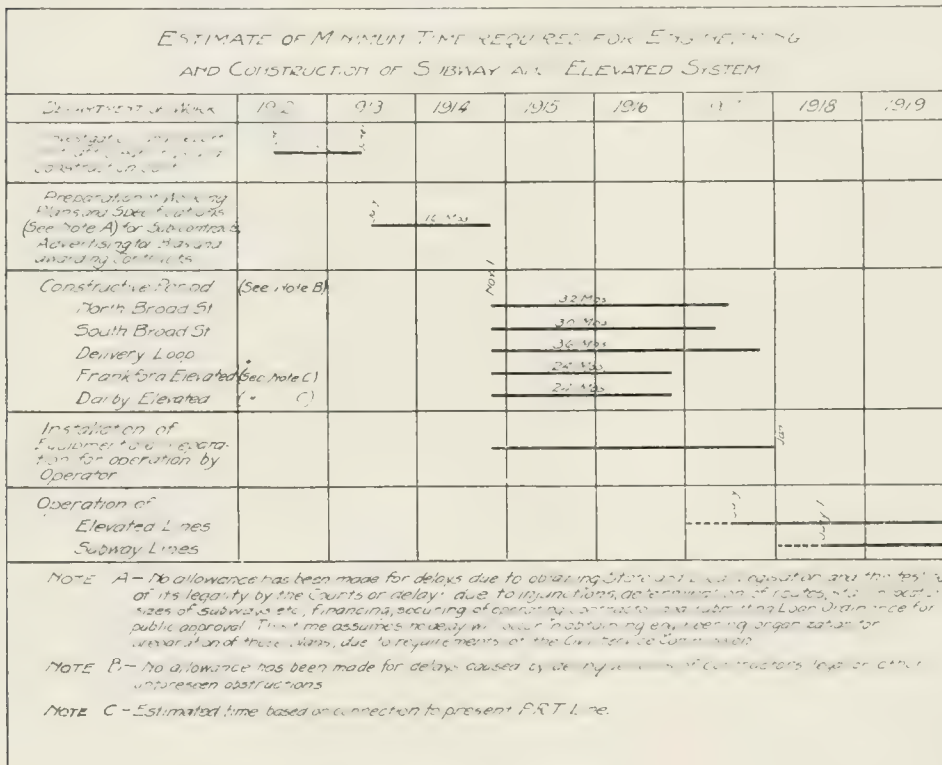 ESTIMATE OF MINIMUM TIME REQUIRED FOR ENGINEERING
AND CONSTRUCTION OF SUBWAY AND ELEVATED SYSTEM
DEPARTMENT OF WORK 1912 1913 1914 1915 1916 1918 1919
construction cost
Preparation of Working
Plans and Specifications
(See Note A) for Subcontracts,
Advertising for Bids and
awarding contracts
July
16 Mos
Nov. 1
Constructive Period (See Note B)
North Broad St 32 Mos
South Broad St 30 Mos
Delivery Loop 36 Mos
Frankford Elevated (See Note C) 24 Mos
Darby Elevated ( " C) 24 Mos
Installation of
Equipment and Prepara-
tion for operation by
Operator
Jan.
Operation of
Elevated Lines July
Subway Lines July 1
NOTE A - No allowance has been made for delays due to obtaining State and Legislation and the test
of its legality by the Courts or delays due to injunctions, determination of routes,
sizes of subways etc., financing, securing of operating and submitting Loan Ordinance for
public approval. This time assumes no delay will occur in obtaining engineering organization for
preparation of these plans, due to requirements of the Civil Service Commission
NOTE B - No allowance has been made for delays caused by of contractors or other
unforeseen obstructions
NOTE C - Estimated time based on connection to present P.R.T. Line.